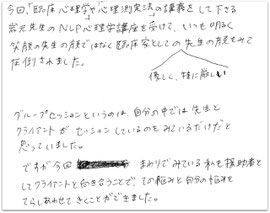 今回、「臨床心理学」や「心理測定法」の講義をして下さる
岩元先生のNLP心理学講座を受けて、いつも明るく
笑顔の先生の顔ではなく臨床家としての先生の顔をみて
圧倒されました。
優しく、時に厳しい
グループセッションというのは、自分の中では先生と
クライアントが セッションしているのをみているだけだと
思っていました。
ですが今回 まわりでみている私も援助者と
してクライアントと向き合うことで、その悩みと自分の悩みを
てらしあわせてきくことができました。